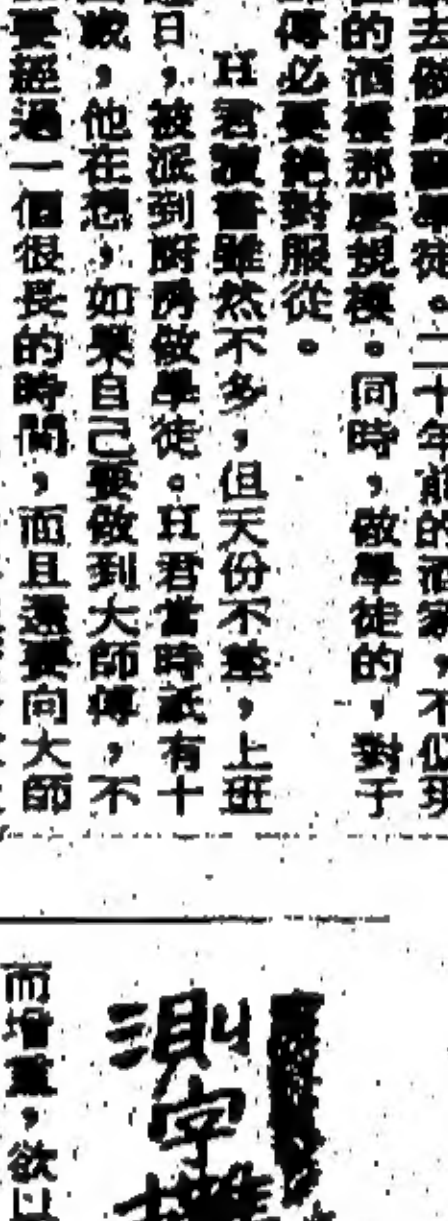 去做學徒。二十年前的酒家，不似現
的酒樓那麼規模。同時，做學徒的，對于
傅必要絕對服從。
H君讀書雖然不多，但天份不差，上班
日，被派到廚房做學徒。H君當時祇有十
歲，他在想，如果自己要做到大師傅，不
要經過一個很長的時間，而且還要向大師
測字
而增，欲以